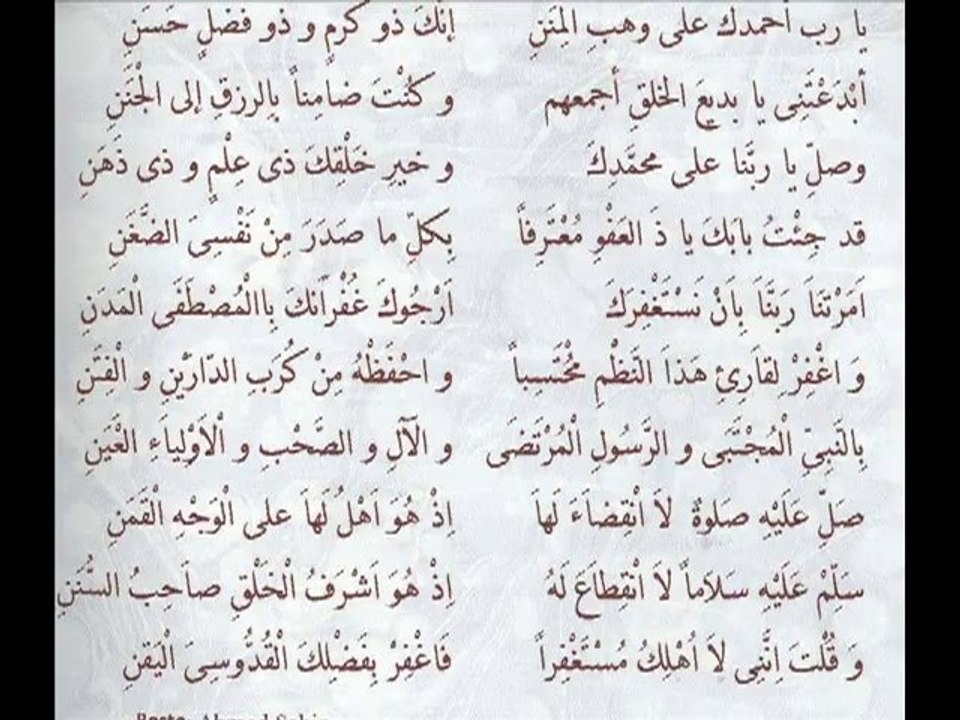 يا رب أحمدك على وهبِ المِنَنِ إنك ذو كرمٍ و ذو فضلٍ حَسَنِ
أبْدَعْتَنِى يا بديعَ الخلقِ أجمعهم و كنْتَ ضامِناً بِالرزقِ إلى الجَنَنِ
وصلِّ يا ربَّنا على محمَّدِكَ و خيرِ خَلْقِكَ ذى عِلْمٍ و ذى ذَهَنِ
قد جِئْتُ بابَكَ يا ذَ العَفْوِ مُعْتَرِفاً بِكلِّ ما صَدَرَ مِنْ نَفْسِىَ الضَّغَنِ
اَمَرْتَنَا رَبَّنَا بِاَنْ نَسْتَغْفِرَكَ اَرْجُوكَ غُفْرَانَكَ بِاالْمُصْطَفَى الْمَدَنِ
وَ اغْفِرْ لِقارِئِ هَذَا النَّظْمِ مُحْتَسِباً و احْفَظْهُ مِنْ كُرَبِ الدّارَيْنِ و الْفِتَنِ
بِالنَّبِىِّ الْمُجْتَبَى و الرَّسُولِ الْمُرْتَضَى و الآلِ و الصَّحْبِ و الْاَوْلِياَءِ الْغَيَنِ
صَلِّ عَلَيْهِ صَلَوةً لاَ انْقِضاَءَ لَهاَ اِذْ هُوَ اَهْلُ لَهاَ على الْوَجْهِ الْقَمَنِ
سَلِّمْ عَلَيْهِ سَلاَماً لاَ انْقِطاَعَ لَهُ اِذْ هُوَ اَشْرَفُ الْخَلْقِ صاَحِبُ السُّنَنِ
وَ قُلْتَ اِنَّنِى لاَ اُهْلِكُ مُسْتَغْفِراً فَاغْفِرْ بِفَضْلِكَ الْقُدُّوسِىَ الْيَقَنِ